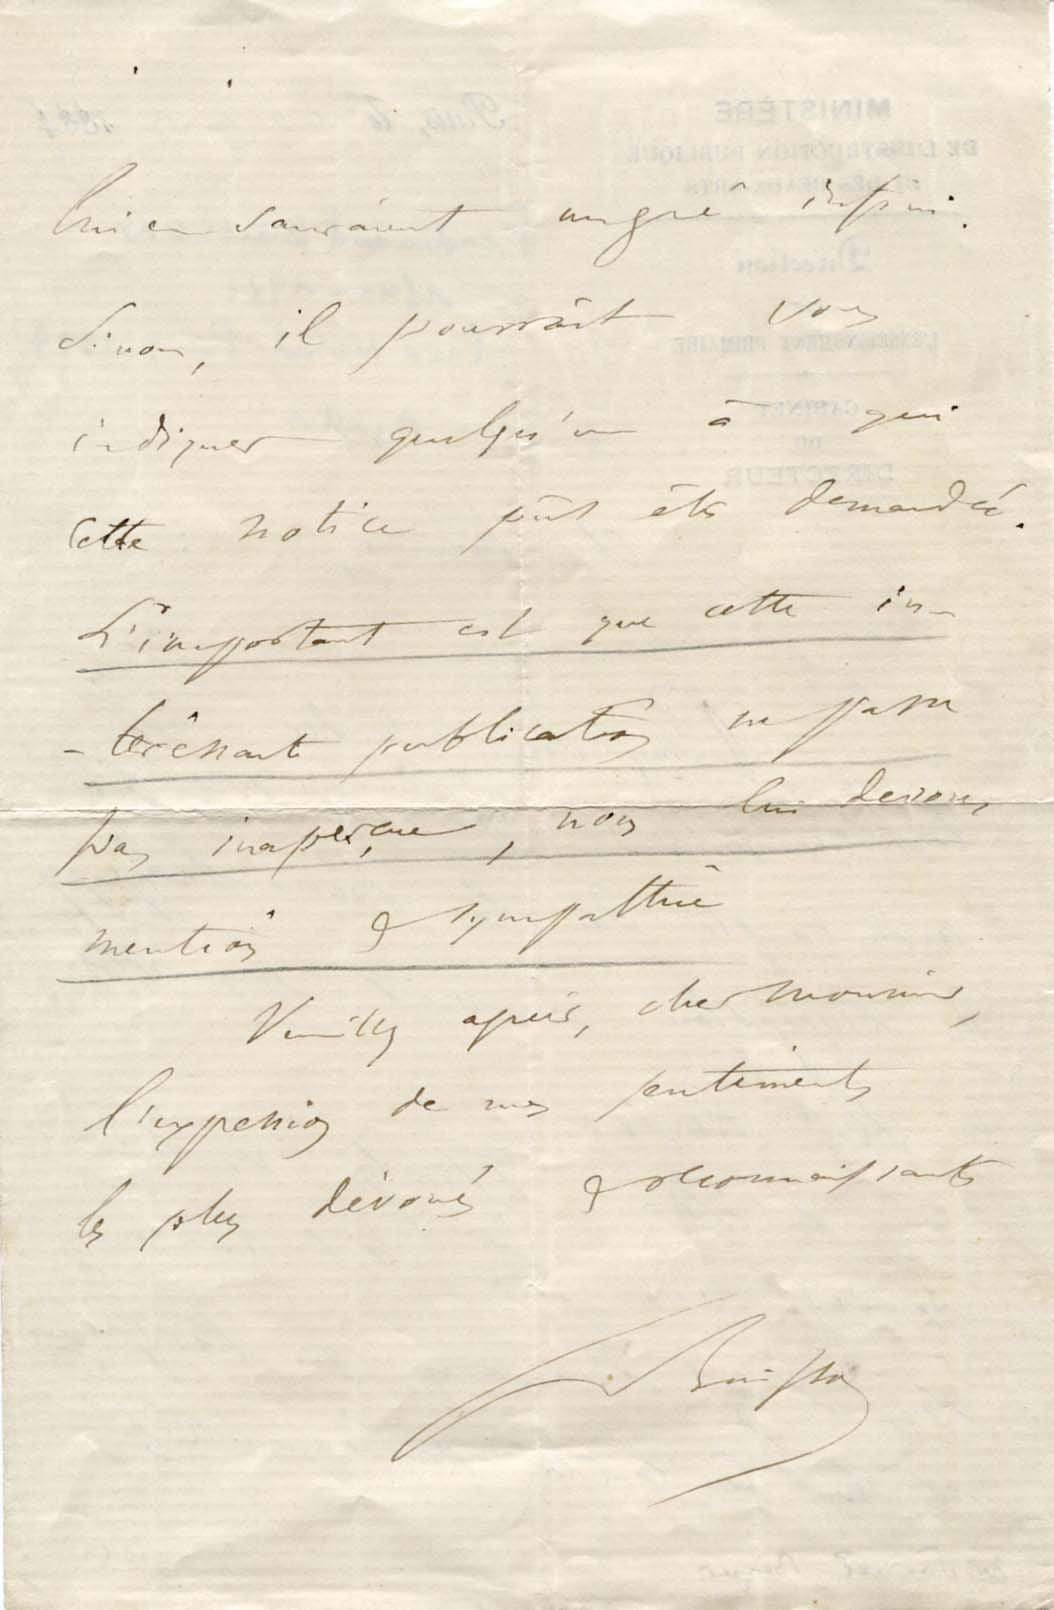 lui en sauraient un gré infini.
Sinon, il pourrait vous
indiquer quelqu'un à qui
cette notice pût être demandée.
L'important est que cette in-
-téressante publication ne passe
pas inaperçue, nous lui devons
mention & sympathie
Veuillez agréer, cher Monsieur,
l'expression de mes sentiments
les plus dévoués & reconnaissants
F Buisson
MINISTÈRE
DE L'INSTRUCTION PUBLIQUE
ET DES BEAUX-ARTS
Direction
L'ENSEIGNEMENT PRIMAIRE
CABINET
DU
DIRECTEUR
Paris, le 188